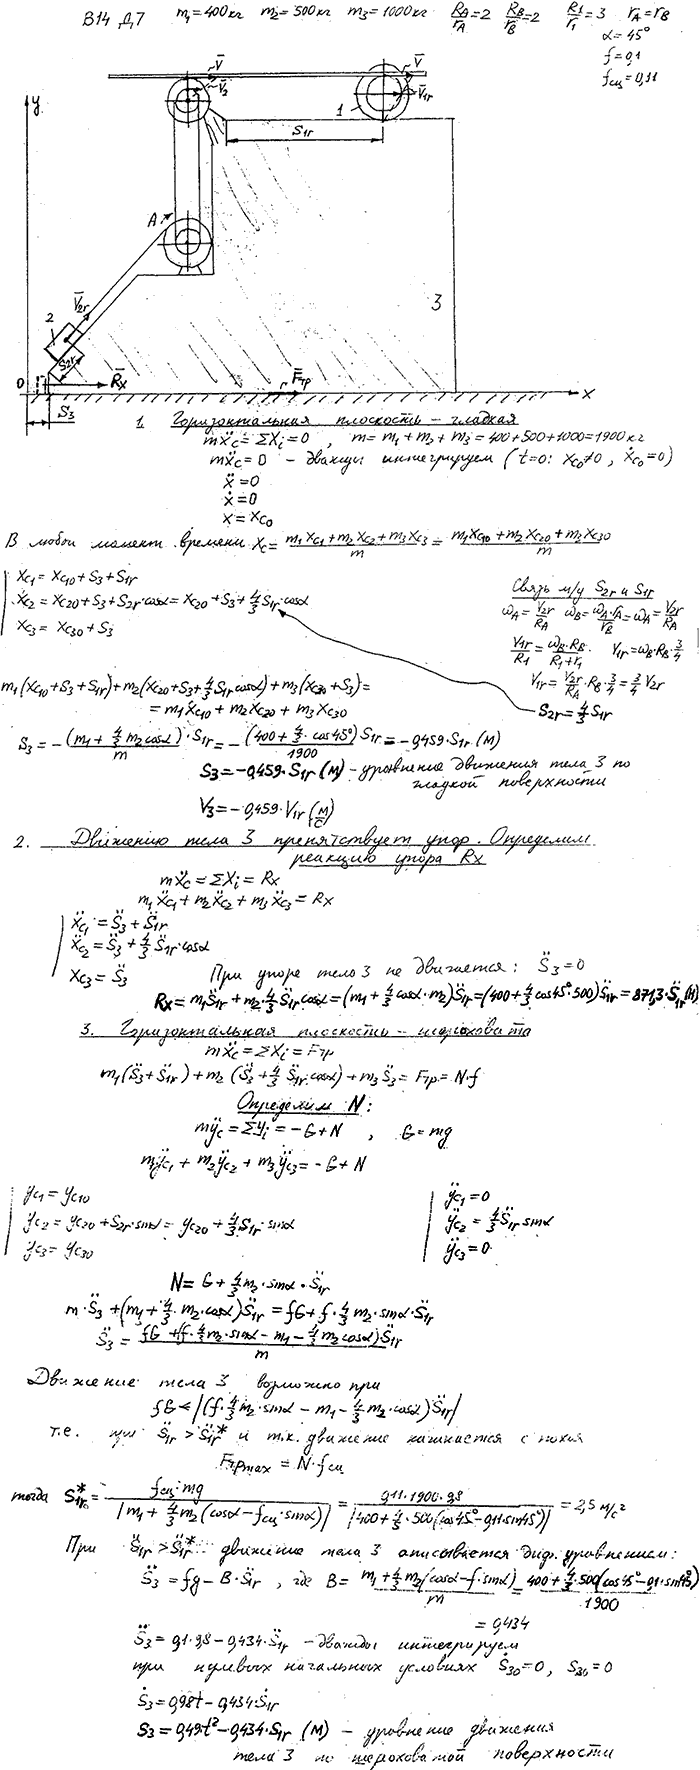 В14 Д.7 m₁=400кг m₂=500кг m₃=1000кг R_A/r_A=2 R_B/r_B=2 R₁/r₁=3 r_A=r_B
α=45°
f=0,1
f_сц=0,11
V̄ V̄
V̄₂ V̄₁r
y 1
S₁r
A
V̄₂r
2 3
S₂r
0 R̄x F̄тр x
S₃
1. Горизонтальная плоскость – гладкая
mẍc=ΣXi=0, m=m₁+m₂+m₃=400+500+1000=1900кг
mẍc=0 – дважды интегрируем (t=0: xc₀≠0, ẋc₀=0)
ẍ=0
ẋ=0
x=xc₀
В любой момент времени Xc=(m₁Xc₁+m₂Xc₂+m₃Xc₃)/m=(m₁Xc₁₀+m₂Xc₂₀+m₂Xc₃₀)/m
Xc₁=Xc₁₀+S₃+S₁r
Xc₂=Xc₂₀+S₃+S₂r·cosα=Xc₂₀+S₃+4/3 S₁r·cosα
Xc₃=Xc₃₀+S₃
Связь м/у S₂r и S₁r
ω_A=V₂r/R_A ω_B=ω_A·r_A/r_B=ω_A=V₂r/R_A
V₁r/R₁=ω_B·R_B/(R₁+r₁) V₁r=ω_B·R_B·3/4
V₁r=V₂r/R_A·R_B·3/4=3/4 V₂r
S₂r=4/3 S₁r
m₁(Xc₁₀+S₃+S₁r)+m₂(Xc₂₀+S₃+4/3 S₁r cosα)+m₃(Xc₃₀+S₃)=
=m₁Xc₁₀+m₂Xc₂₀+m₃Xc₃₀
S₃=-(m₁+4/3 m₂cosα)/m·S₁r=-(400+4/3·cos45°)/1900 S₁r=-0,459·S₁r (м)
S₃=-0,459·S₁r (м) – уравнение движения тела 3 по
гладкой поверхности
V₃=-0,459·V₁r (м/с)
2. Движению тела 3 препятствует упор. Определим
реакцию упора Rx
mẍc=ΣXi=Rx
m₁ẍc₁+m₂ẍc₂+m₃ẍc₃=Rx
ẍc₁=S̈₃+S̈₁r
ẍc₂=S̈₃+4/3 S̈₁r·cosα
ẍc₃=S̈₃
При упоре тело 3 не движется: S̈₃=0
Rx=m₁S̈₁r+m₂·4/3 S̈₁r cosα=(m₁+4/3 cosα·m₂)S̈₁r=(400+4/3 cos45°·500)S̈₁r=871,3·S̈₁r (Н)
3. Горизонтальная плоскость – шероховата
mẍc=ΣXi=Fтр
m₁(S̈₃+S̈₁r)+m₂(S̈₃+4/3 S̈₁r·cosα)+m₃S̈₃=Fтр=N·f
Определим N:
mÿc=ΣYi=-G+N, G=mg
m₁ÿc₁+m₂ÿc₂+m₃ÿc₃=-G+N
yc₁=yc₁₀
yc₂=yc₂₀+S₂r·sinα=yc₂₀+4/3·S₁r·sinα
yc₃=yc₃₀
ÿc₁=0
ÿc₂=4/3 S̈₁r sinα
ÿc₃=0
N=G+4/3 m₂·sinα·S̈₁r
m·S̈₃+(m₁+4/3·m₂·cosα)S̈₁r=fG+f·4/3 m₂·sinα·S̈₁r
S̈₃=(fG+(f·4/3 m₂·sinα-m₁-4/3 m₂cosα)·S̈₁r)/m
Движение тела 3 возможно при
fG<|(f·4/3 m₂·sinα-m₁-4/3 m₂·cosα)S̈₁r|
т.е. при S̈₁r>S̈₁r* и т.к. движение начинается с покоя
Fтр max=N·f_сц
тогда S̈₁r*=f_сц·mg/|m₁+4/3 m₂(cosα-f_сц·sinα)|=0,11·1900·9,8/|400+4/3·500(cos45°-0,11·sin45°)|=2,5 м/с²
При S̈₁r>S̈₁r* движение тела 3 описывается диф. уравнением:
S̈₃=fg-B·S̈₁r, где B=(m₁+4/3 m₂(cosα-f·sinα))/m=(400+4/3·500(cos45°-0,1·sin45°))/1900
=0,434
S̈₃=0,1·9,8-0,434·S̈₁r – дважды интегрируем
при нулевых начальных условиях Ṡ₃₀=0, S₃₀=0
Ṡ₃=0,98t-0,434·Ṡ₁r
S₃=0,49t²-0,434·S₁r (м) – уравнение движения
тела 3 по шероховатой поверхности